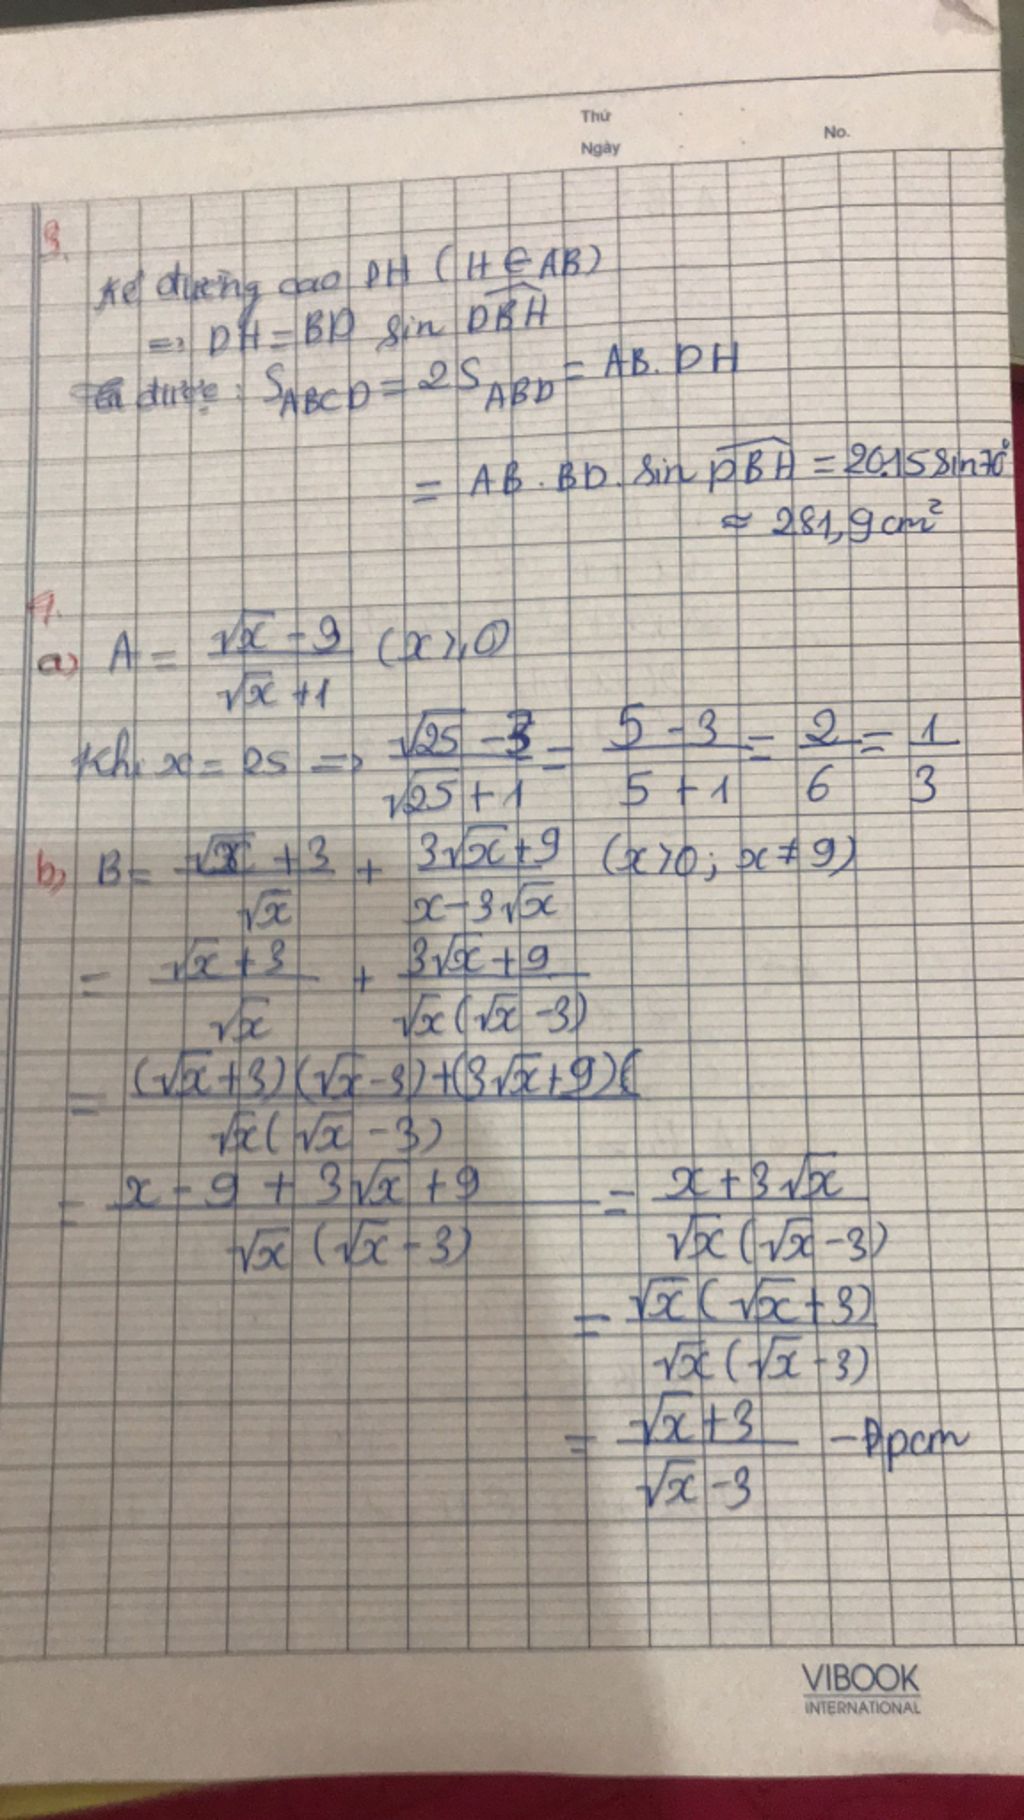 Thứ
Ngày
No.
3.
Kẻ đường cao DH (H ∈ AB)
=> DH = BD sin DBH
được: S_ABCD = 2S_ABD = AB. DH
= AB . BD. sin DBH = 20.15 sin70°
≈ 281,9cm²
a) A = (√x - 9)/(√x + 1) (x ⩾ 0)
Khi x = 25 => (√25 - 3)/(√25 + 1) = (5 - 3)/(5 + 1) = 2/6 = 1/3
b) B = (√x + 3)/√x + (3√x + 9)/(x - 3√x) (x > 0; x ≠ 9)
= (√x + 3)/√x + (3√x + 9)/(√x(√x - 3))
= ((√x + 3)(√x - 3) + (3√x + 9)()/(√x(√x - 3))
= (x - 9 + 3√x + 9)/(√x (√x - 3)) = (x + 3√x)/(√x(√x - 3))
= (√x(√x + 3))/(√x(√x - 3))
= (√x + 3)/(√x - 3) - Đpcm
VIBOOK
INTERNATIONAL